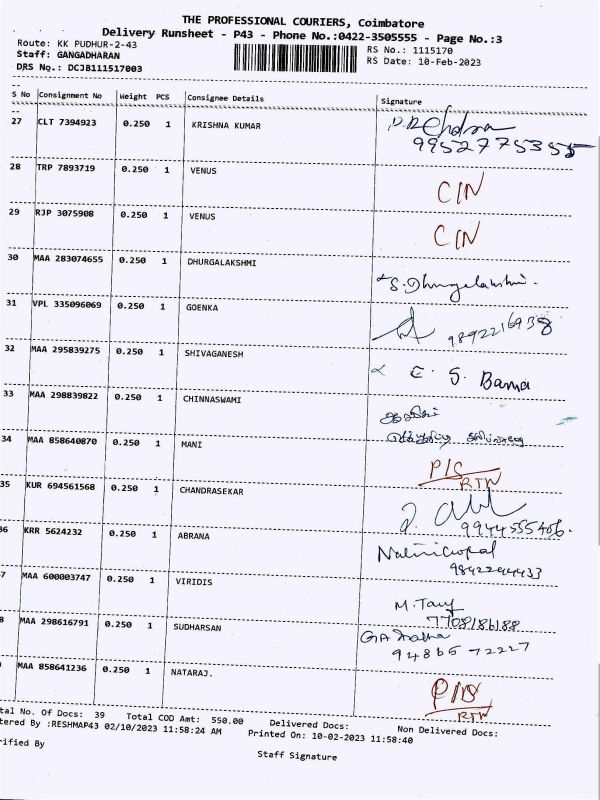 THE PROFESSIONAL COURIERS, Coimbatore
Delivery Runsheet - P43 - Phone No.:0422-3505555 - Page No.:3
Route: KK PUDHUR-2-43 RS No.: 1115170
Staff: GANGADHARAN RS Date: 10-Feb-2023
DRS No.: DCJB111517003
S No Consignment No Weight PCS Consignee Details Signature
27 CLT 7394923 0.250 1 KRISHNA KUMAR
9952775355
28 TRP 7893719 0.250 1 VENUS CIN
29 RJP 3075908 0.250 1 VENUS CIN
30 MAA 283074655 0.250 1 DHURGALAKSHMI S. Dhurgalakshmi.
31 VPL 335096069 0.250 1 GOENKA 9892216938
32 MAA 295839275 0.250 1 SHIVAGANESH C. S. Bama
33 MAA 298839822 0.250 1 CHINNASWAMI
34 MAA 858640870 0.250 1 MANI P/S
RTN
35 KUR 694561568 0.250 1 CHANDRASEKAR
9944555406.
36 KRR 5624232 0.250 1 ABRANA Nalinigopal
9842294433
7 MAA 600003747 0.250 1 VIRIDIS M.
7708186188
8 MAA 298616791 0.250 1 SUDHARSAN
94865 72227
MAA 858641236 0.250 1 NATARAJ.
RTN
tal No. Of Docs: 39 Total COD Amt: 550.00 Delivered Docs: Non Delivered Docs:
tered By :RESHMAP43 02/10/2023 11:58:24 AM Printed On: 10-02-2023 11:58:40
rified By Staff Signature